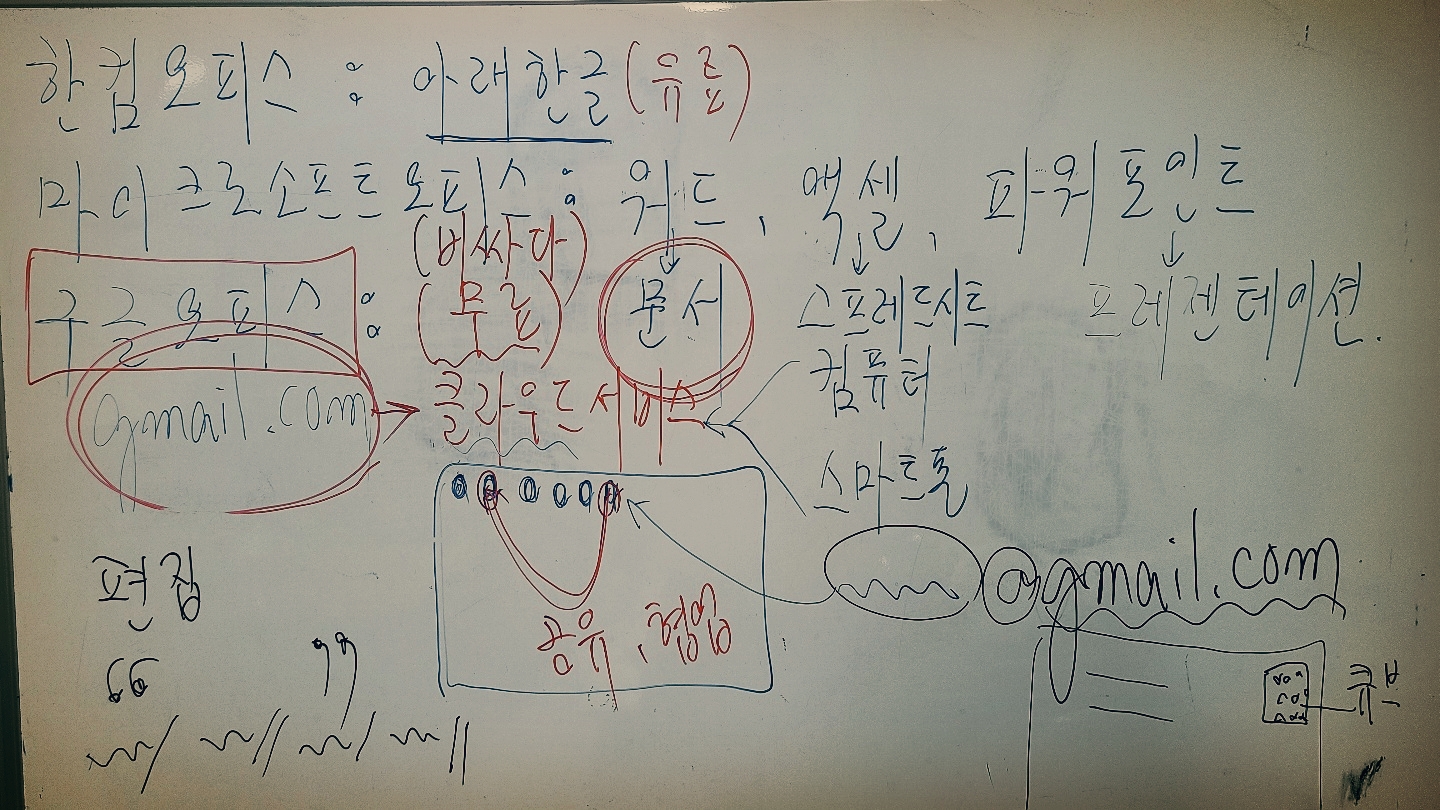 한컴오피스 : 아래한글 (유료)
마이크로소프트오피스 : 워드, 액셀, 파워포인트
(비싸다)
구글오피스 : (무료) 문서 스프레드시트 프레젠테이션.
gmail.com → 클라우드서비스 컴퓨터
스마트폰
@gmail.com
공유, 협업
편집
“ ”
큐브